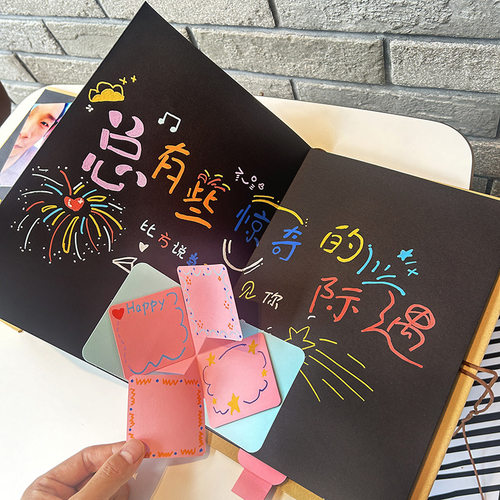 总有些惊奇的际遇
比方说当
见你
Happy